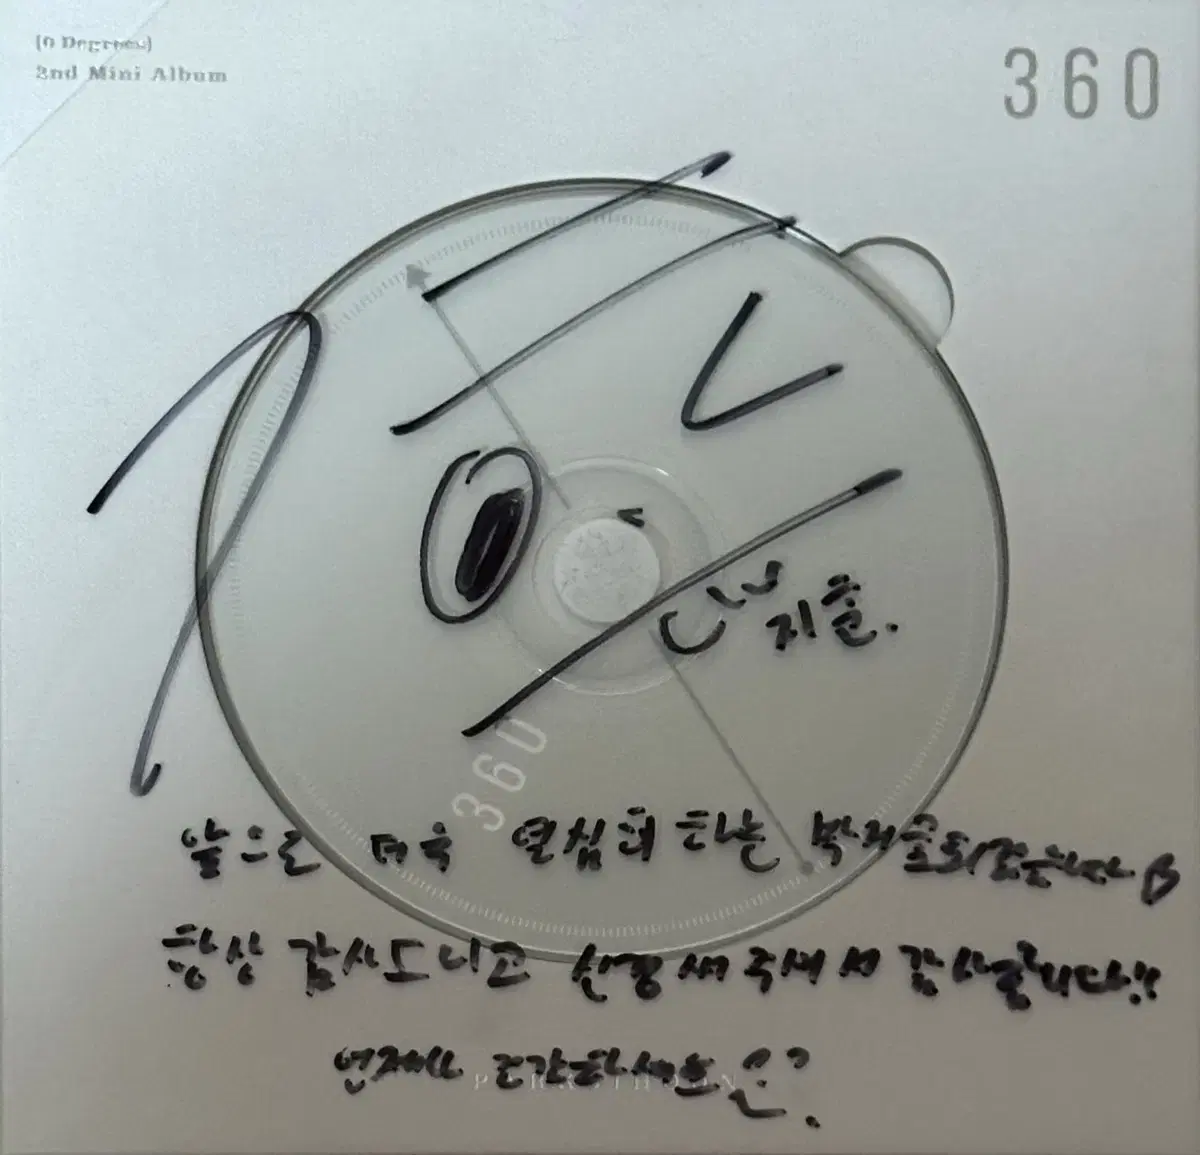 (0 Degrees)
2nd Mini Album
360
지훈.
360
앞으로 더욱 열심히 하는 박지훈
항상 감사드리고 신경 써주셔서 감사합니다!!
언제나 건강하세요
PARK JIHOON